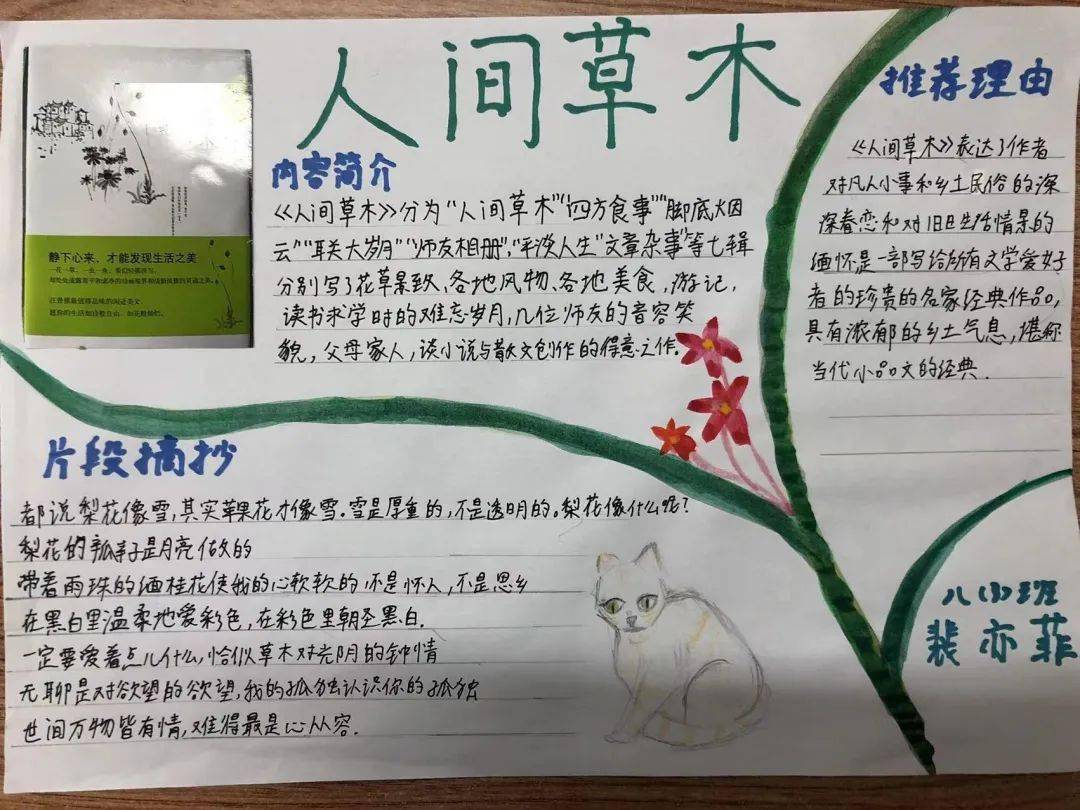 人间草木
静下心来，才能发现生活之美
内容简介
《人间草木》分为“人间草木”“四方食事”“脚底烟
云”“联大岁月”“师友相册”，“平淡人生”“文章杂事”等七辑
分别写了花草景致、各地风物、各地美食，游记，
读书求学时的难忘岁月，几位师友的音容笑
貌，父母家人，谈小说与散文创作的得意之作。
推荐理由
《人间草木》表达了作者
对凡人小事和乡土民俗的深
深眷恋和对旧日生活情景的
缅怀是一部写给所有文学爱好
者的珍贵的名家经典作品，
具有浓郁的乡土气息，堪称
当代小品文的经典.
片段摘抄
都说梨花像雪，其实苹果花才像雪。雪是厚重的，不是透明的。梨花像什么呢？
梨花的瓣子是月亮做的
带着雨珠的缅桂花使我的心软软的不是怀人，不是思乡
在黑白里温柔地爱彩色，在彩色里朝圣黑白.
一定要爱着点儿什么，恰似草木对光阴的钟情
无聊是对欲望的欲望，我的孤独认识你的孤独
世间万物皆有情，难得最是心从容.
裴亦菲